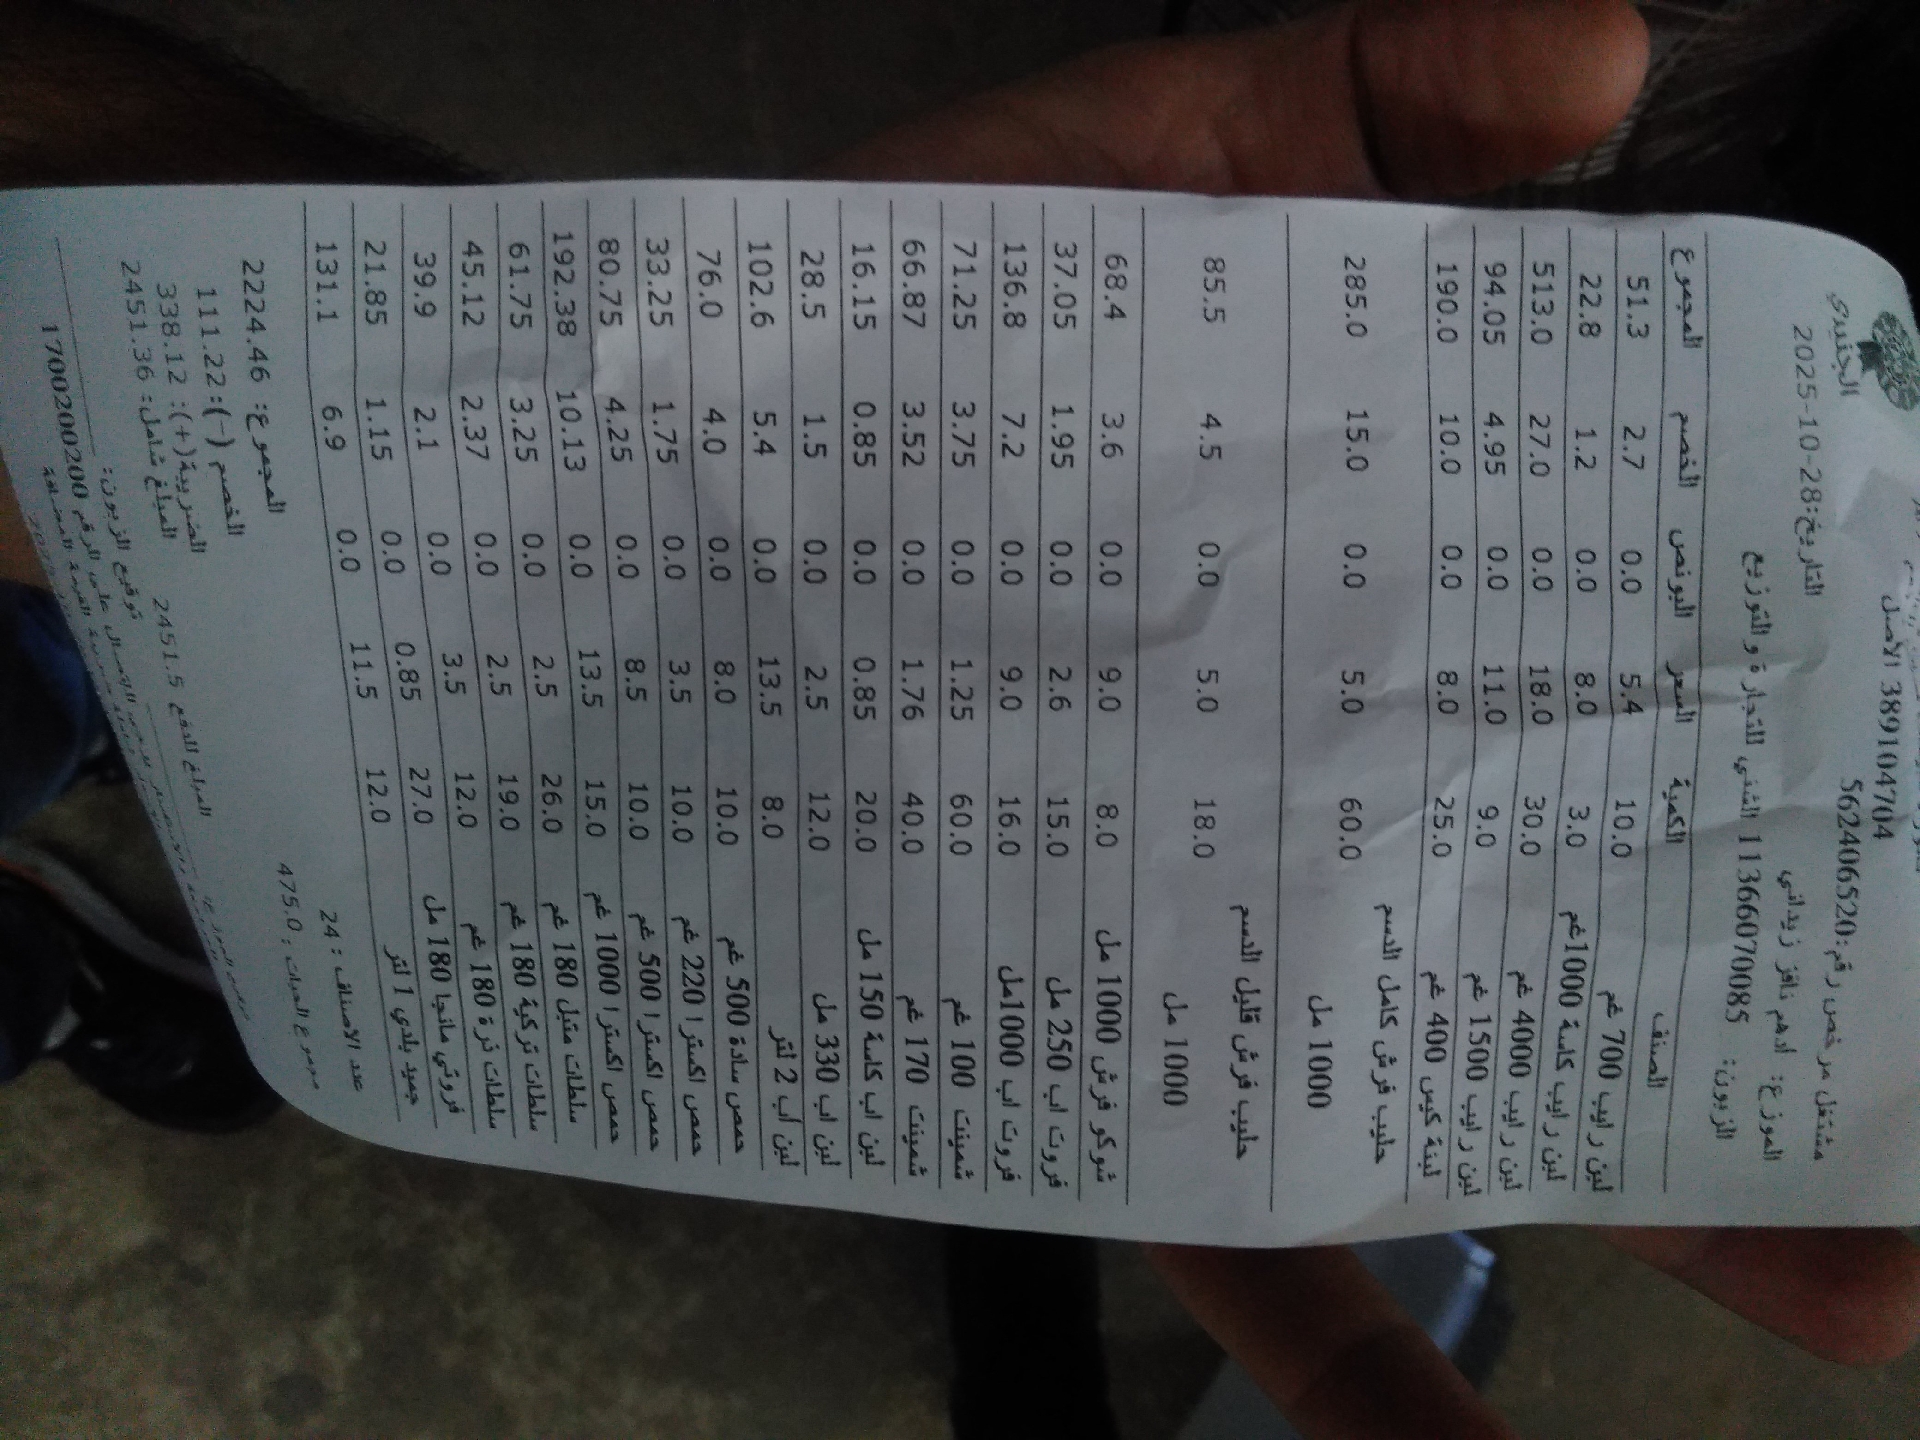 3891047704 الأصل
مشتغل مرخص رقم:562406520
الجنيدي
التاريخ:2025-10-28
الموزع: ادهم نافز زيداني
الزبون: 1136607000085 الشني للتجارة و التوزيع
الصنف الكمية السعر البونص الخصم المجموع
لبن رايب 700 غم 10.0 5.4 0.0 2.7 51.3
لبن رايب كاسة 1000غم 3.0 8.0 0.0 1.2 22.8
لبن رايب 4000 غم 30.0 18.0 0.0 27.0 513.0
لبن رايب 1500 غم 9.0 11.0 0.0 4.95 94.05
لبنة كيس 400 غم 25.0 8.0 0.0 10.0 190.0
حليب فرش كامل الدسم
1000 مل 60.0 5.0 0.0 15.0 285.0
حليب فرش قليل الدسم
1000 مل 18.0 5.0 0.0 4.5 85.5
شوكو فرش 1000 مل 8.0 9.0 0.0 3.6 68.4
فروت اب 250 مل 15.0 2.6 0.0 1.95 37.05
فروت اب 1000مل 16.0 9.0 0.0 7.2 136.8
شمينت 100 غم 60.0 1.25 0.0 3.75 71.25
شمينت 170 غم 40.0 1.76 0.0 3.52 66.87
لبن اب كاسة 150 مل 20.0 0.85 0.0 0.85 16.15
لبن اب 330 مل 12.0 2.5 0.0 1.5 28.5
لبن اب 2 لتر 8.0 13.5 0.0 5.4 102.6
حمص سادة 500 غم 10.0 8.0 0.0 4.0 76.0
حمص اكسترا 220 غم 10.0 3.5 0.0 1.75 33.25
حمص اكسترا 500 غم 10.0 8.5 0.0 4.25 80.75
حمص اكسترا 1000 غم 15.0 13.5 0.0 10.13 192.38
سلطات متبل 180 غم 26.0 2.5 0.0 3.25 61.75
سلطات تركية 180 غم 19.0 2.5 0.0 2.37 45.12
سلطات ذرة 180 غم 12.0 3.5 0.0 2.1 39.9
فروتي مانجا 180 مل 27.0 0.85 0.0 1.15 21.85
جميد بلدي 1 لتر 12.0 11.5 0.0 6.9 131.1
عدد الاصناف : 24
مجموع الحبات : 475.0
المجموع: 2224.46
الخصم (-): 111.22
الضريبة(+): 338.12
المبلغ شامل: 2451.36
المبلغ للدفع 2451.5
توقيع الزبون:
الاتصال على الرقم 1700200200